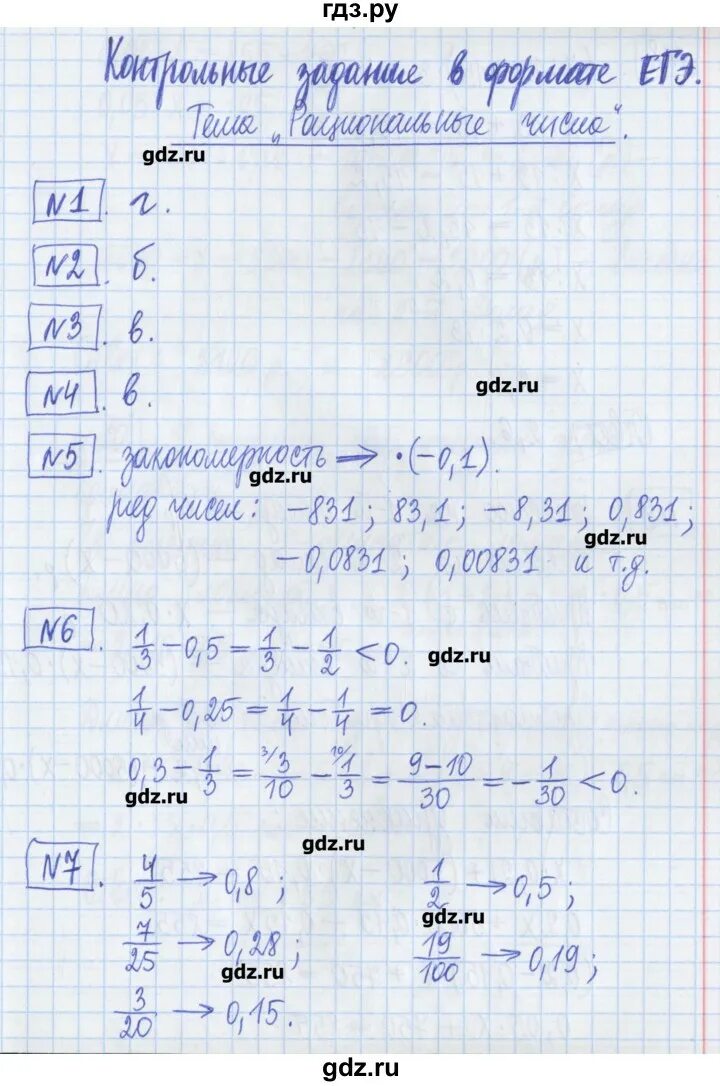 гдз.ру
Контрольные задания в формате ЕГЭ.
Тема „Рациональные числа".
gdz.ru
№1. г.
№2. б.
№3. в.
gdz.ru
№4. в.
№5. закономерность ⇒ ·(−0,1).
gdz.ru
ряд чисел: −831; 83,1; −8,31; 0,831;
gdz.ru
−0,0831; 0,00831 и т.д.
№6. 1/3 − 0,5 = 1/3 − 1/2 < 0.
gdz.ru
1/4 − 0,25 = 1/4 − 1/4 = 0.
0,3 − 1/3 = 3/ 3/10 − 10/ 1/3 = 9−10/30 = − 1/30 < 0.
gdz.ru
gdz.ru
№7. 4/5 → 0,8; 1/2 → 0,5;
gdz.ru
7/25 → 0,28; 19/100 → 0,19;
gdz.ru
3/20 → 0,15.
gdz.ru